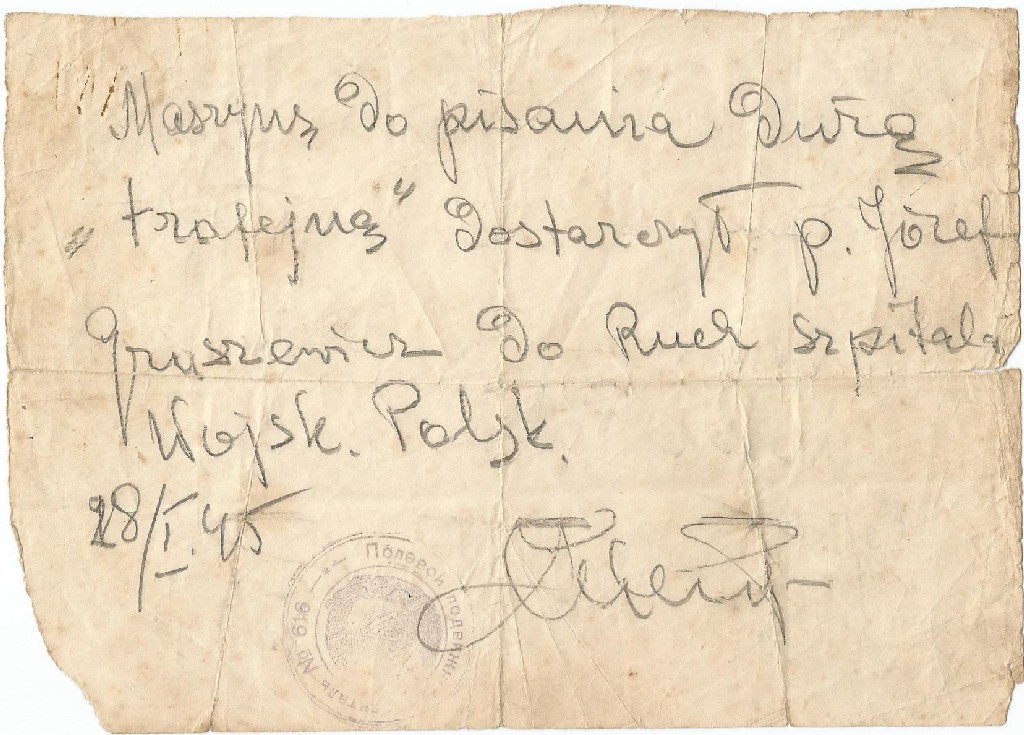 Maszynę do pisania Dużą
„trofejną” Dostarczył p. Józef
Gruszewicz Do Ruch szpitala
Wojsk. Polsk.
28/I.45
Полевой подвижн
италь № 616